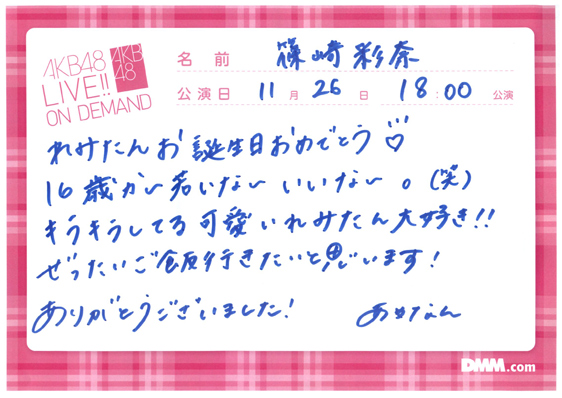 AKB48
LIVE!!
ON DEMAND
AKB
48
名前 篠崎彩奈
公演日 11月26日 18:00 公演
れみたんお誕生日おめでとう♡
16歳かー若いなー いいなー。(笑)
キラキラしてる可愛いれみたん大好き!!
ぜったいご飯行きたいと思います!
ありがとうございました!
あやなん
DMM.com